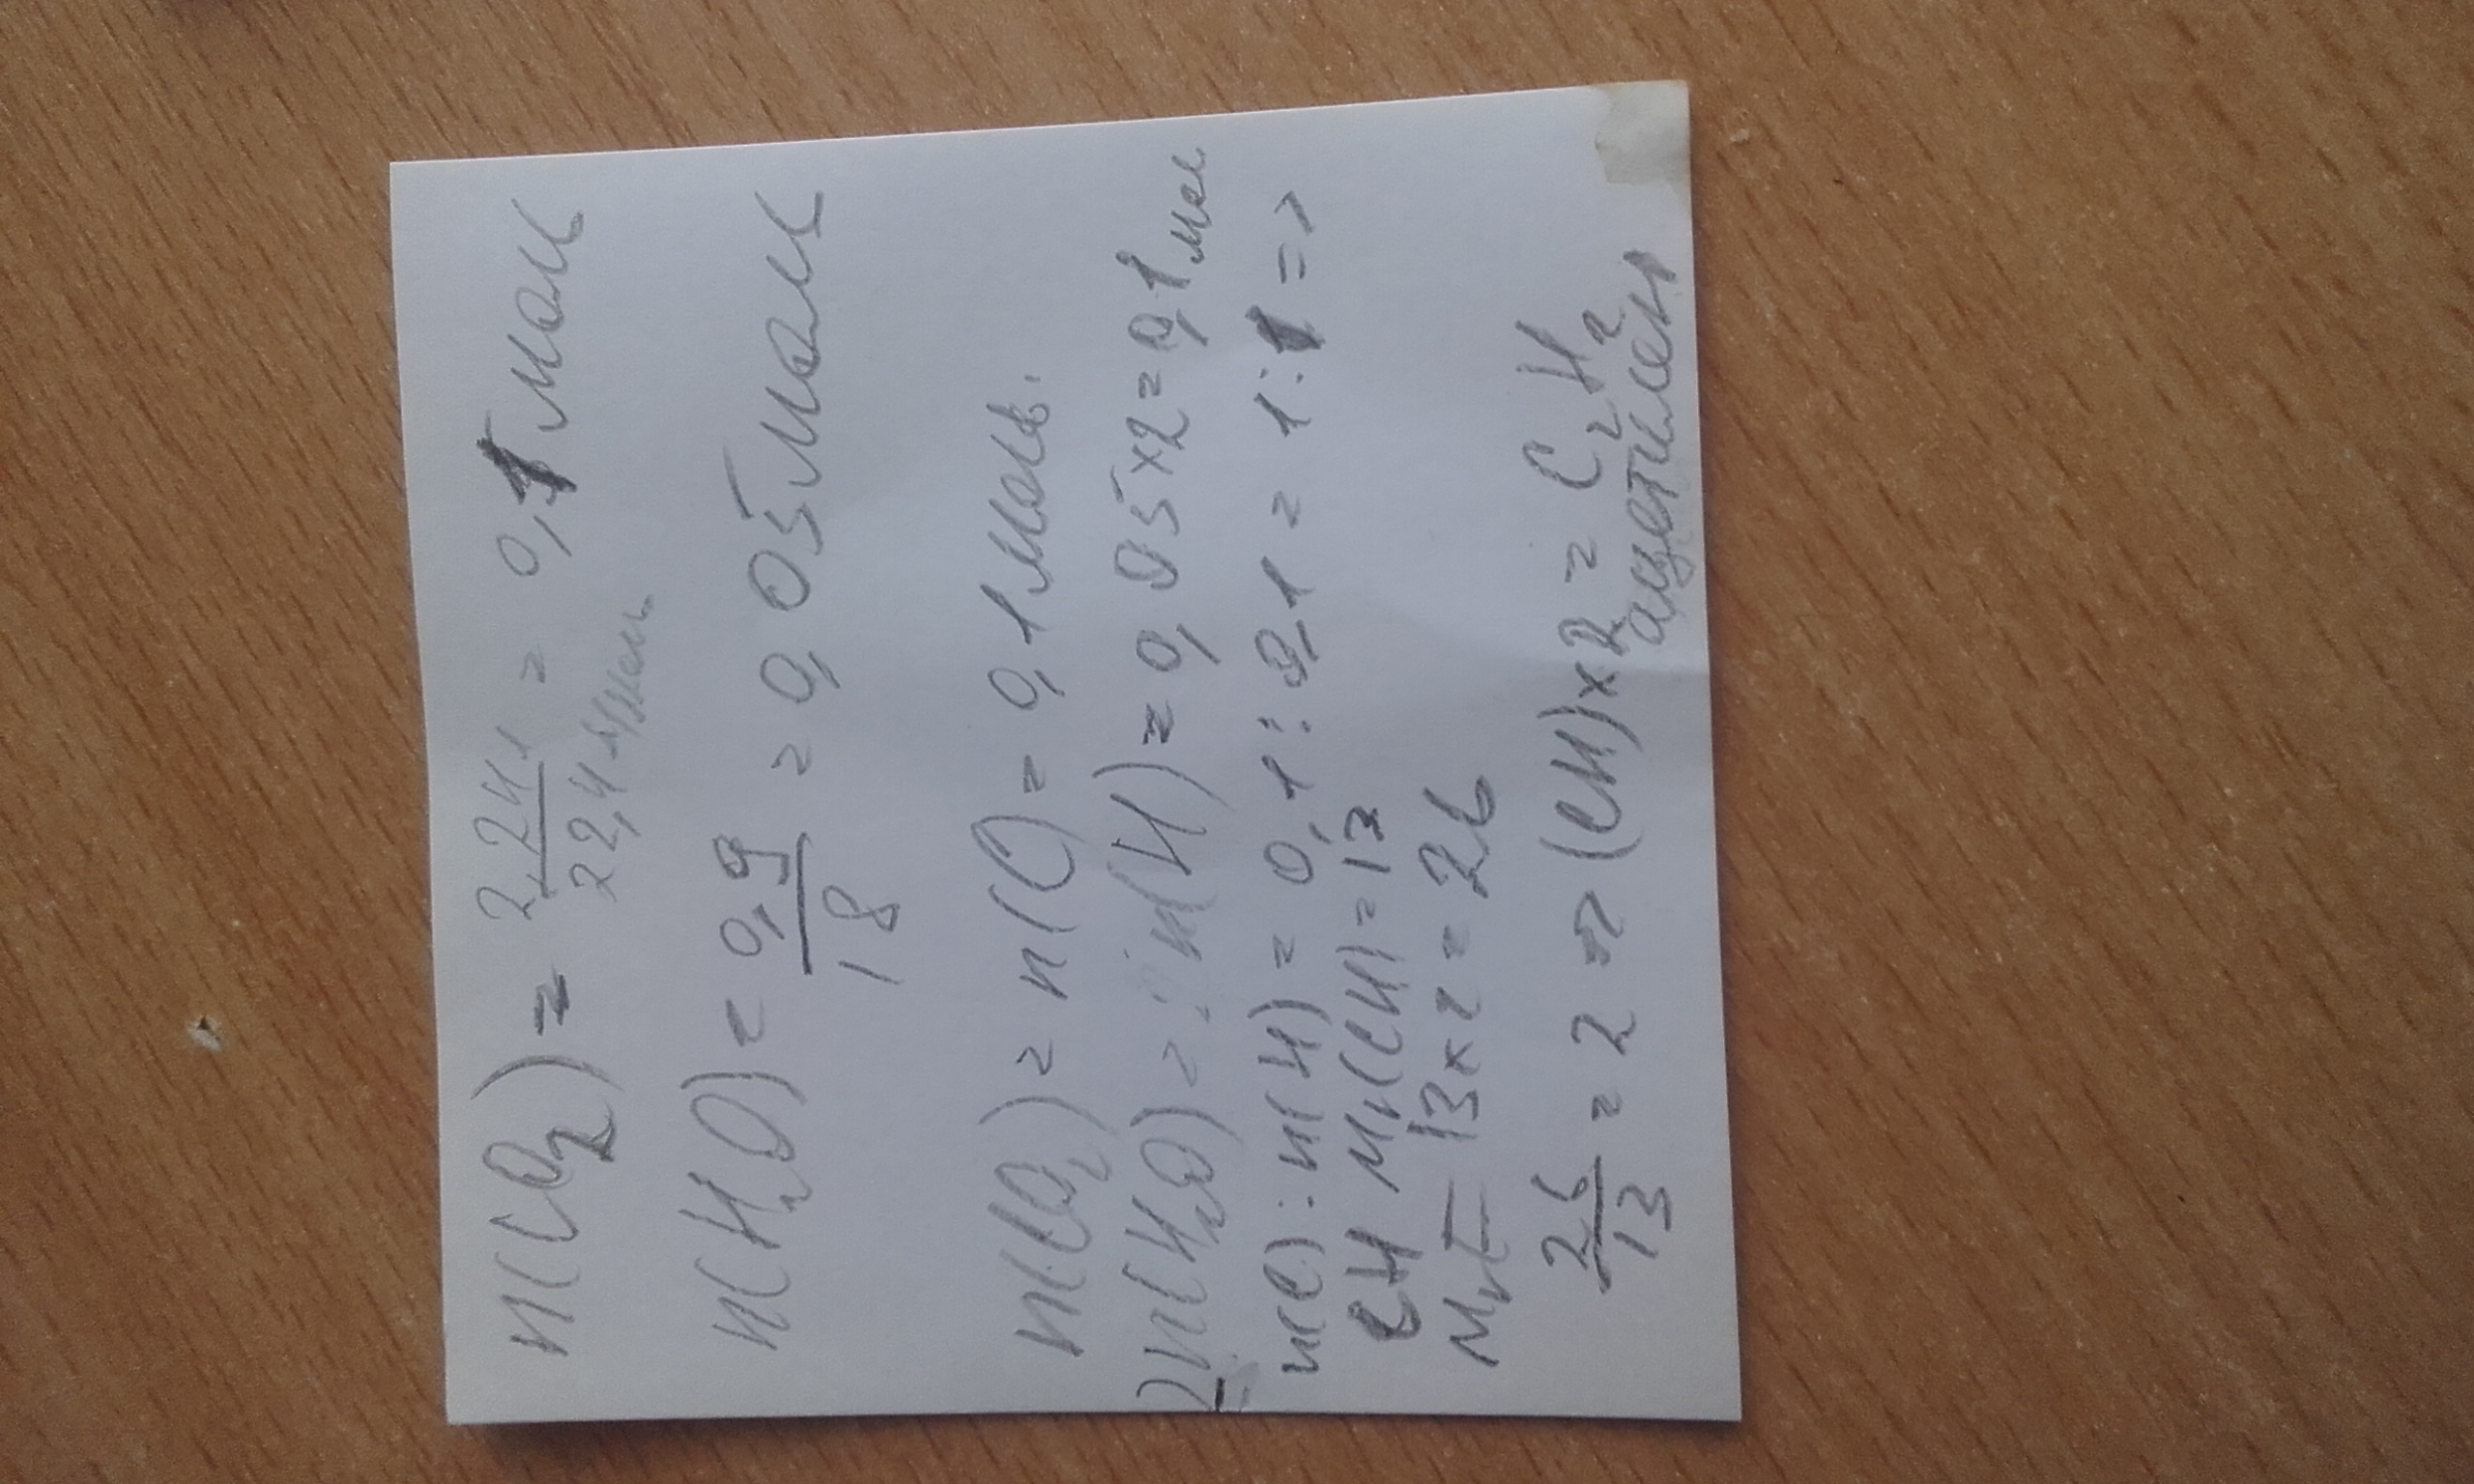 n(CO₂) = 2,24л / 22,4 л/моль = 0,1 моль
n(H₂O) = 0,9 / 18 = 0,05 моль
n(CO₂) = n(C) = 0,1 моль.
2n(H₂O) = n(H) = 0,05 x 2 = 0,1 моль
n(C) : n(H) = 0,1 : 0,1 = 1 : 1 =>
CH Mr(CH) = 13
Mr = 13 x 2 = 26
26 / 13 = 2 => (CH) x 2 = C₂H₂
ацетилен